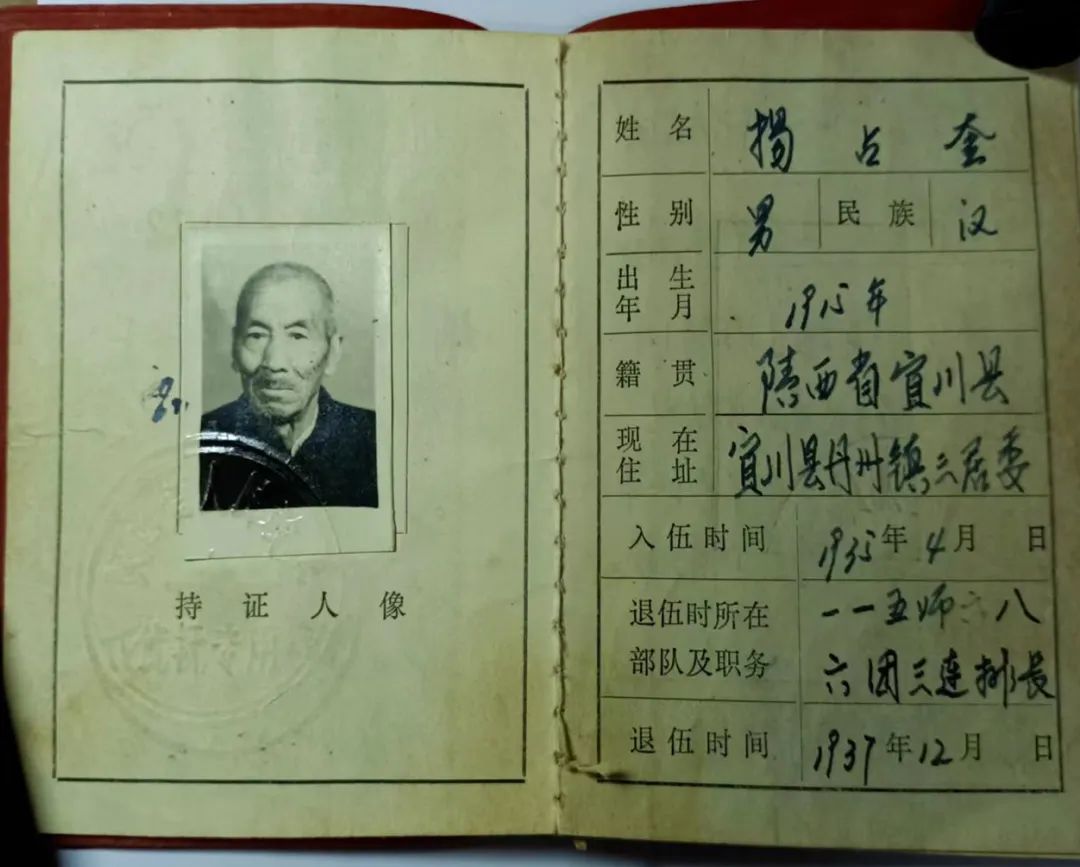 持证人像
姓名 揭占奎
性别 男 民族 汉
出生年月 1915年
籍贯 陕西省宜川县
现在住址 宜川县丹州镇三居委
入伍时间 1935年4月 日
退伍时所在部队及职务 一一五师六八六团三连排长
退伍时间 1937年12月 日